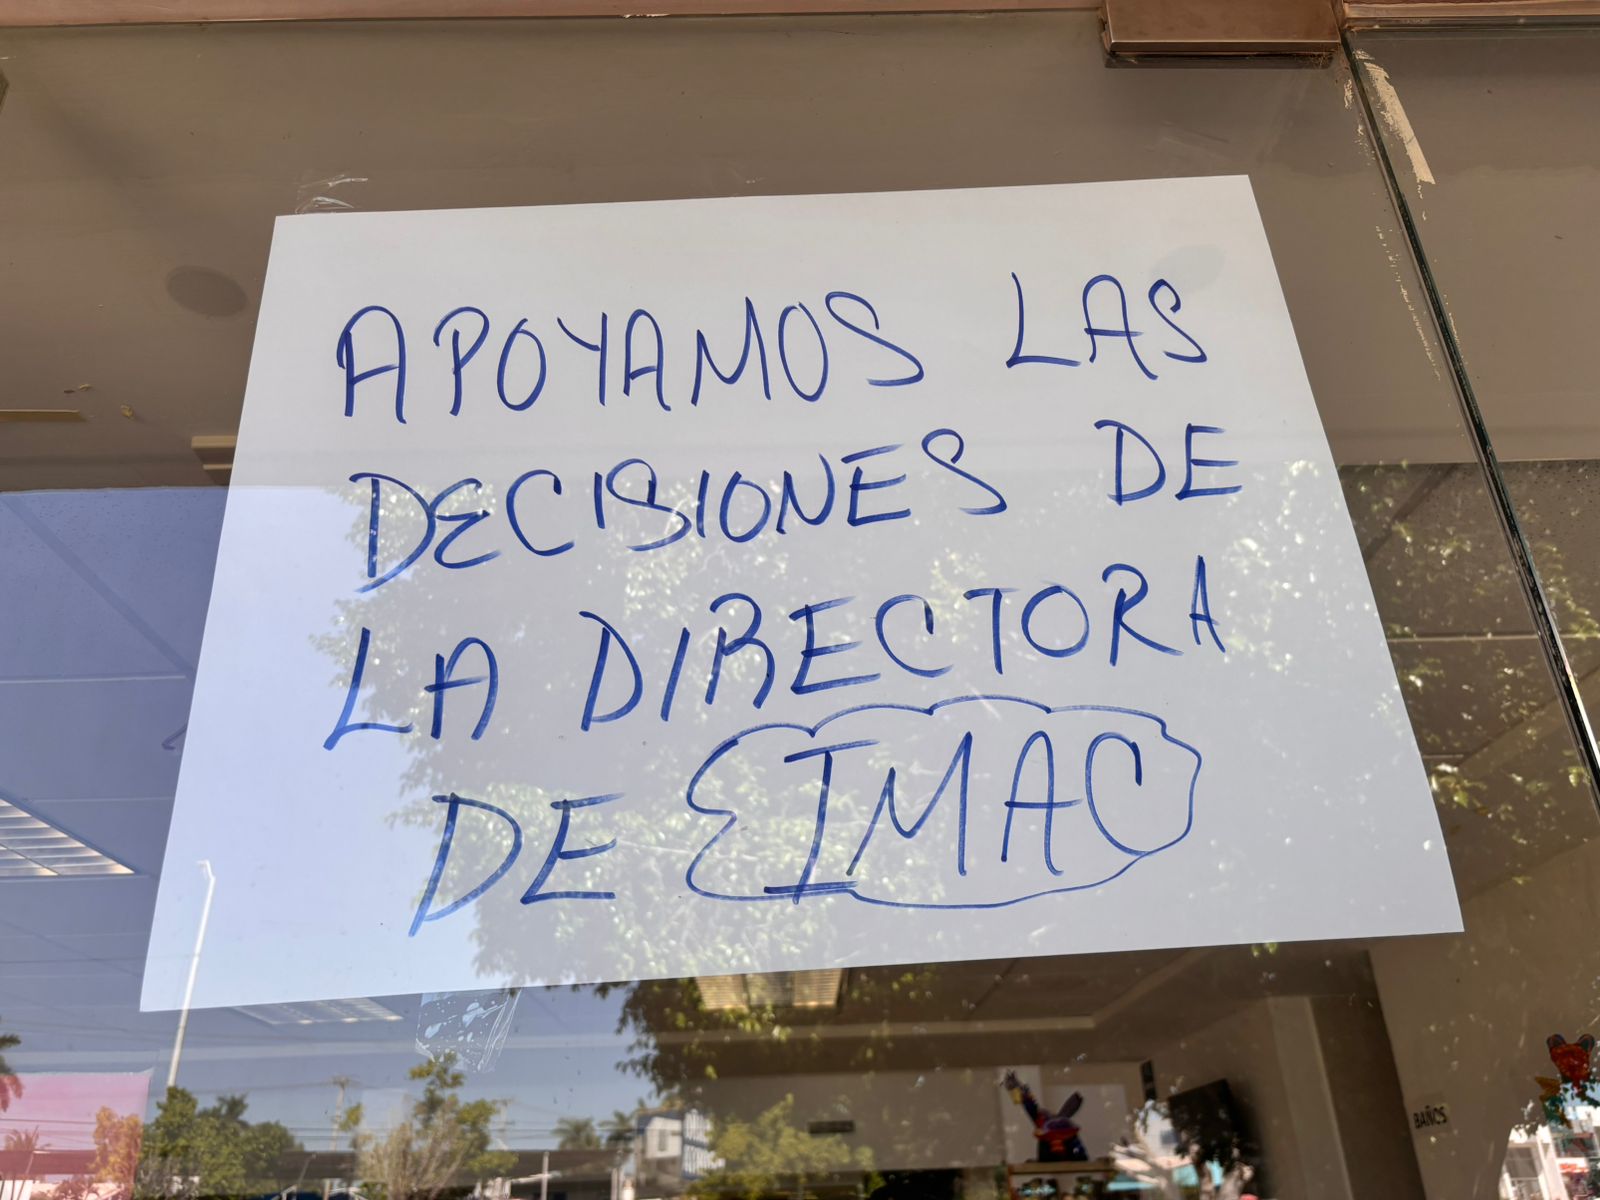 APOYAMOS LAS
DECISIONES DE
LA DIRECTORA
DE IMAC
BAÑOS